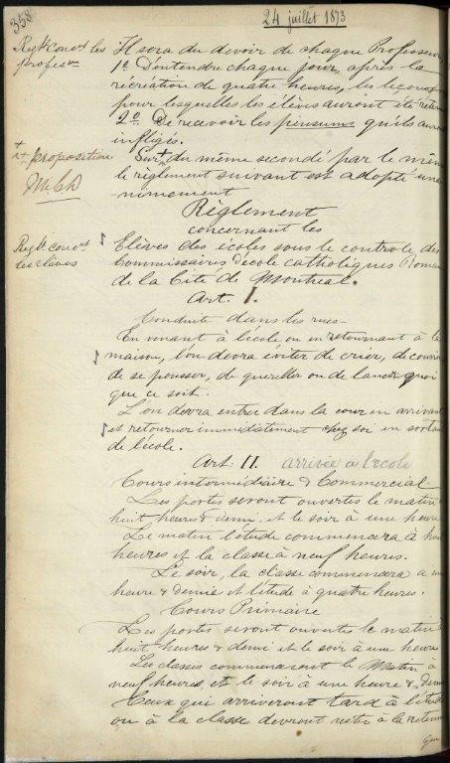 358
24 juillet 1873
Reglt concnt les
profesrs
Il sera du devoir de chaque Professeur
1o D'entendre chaque jour, après la
récréation de quatre heures, les leçons
pour lesquelles les élèves auront été
2o De recevoir les pensums qu'ils
infligés.
+
proposition
Sur + du même secondé par le
le règlement suivant est adopté una
nimement
Règlement
concernant les
Reglt concnt
les élèves
Elèves des écoles sous le controle des
Commissaires d'école catholiques Romains
de la Cité de Montreal.
Art. I.
Conduite dans les rues
En venant à l'école ou en retournant à la
maison, l'on devra éviter de crier, de courir
de se pousser, de quereller ou de lancer quoi
que ce soit.
L'on devra entrer dans la cour en arrivant
et retourner immédiatement chez soi en sortant
de l'école.
Art II. arrivée à l'école
Cours intermédiaire & Commercial
Les portes seront ouvertes le matin
huit heures & demie et le soir à une heure
Le matin l'étude commencera à
heures et la classe à neuf heures.
Le soir, la classe commencera a
heure & demie et l'étude à quatre heures.
Cours Primaire
Les portes seront ouvertes le matin
huit heures & demie et le soir à une heure
Les classes commenceront le Matin à
neuf heures et le soir à une heure &
Ceux qui arriveront tard à l'étude
ou à la classe devront rester à la